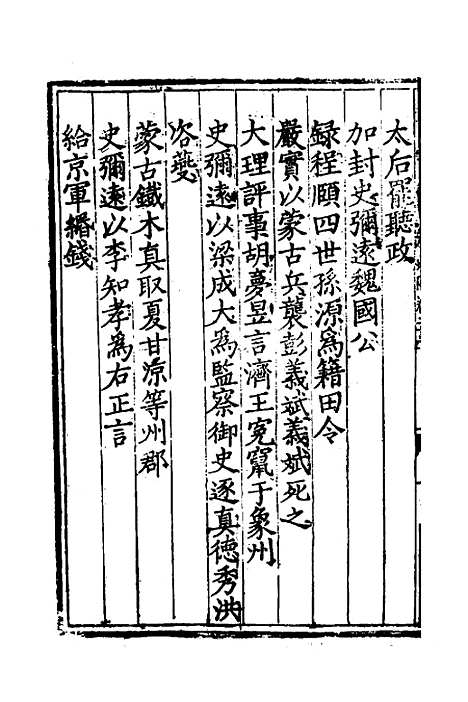 太后罷聽政
加封史彌遠魏國公
録程頤四世孫源為籍田令
嚴實以蒙古兵襲彭義斌義斌死之
大理評事胡夢昱言濟王寃竄于象州
史彌遠以梁成大為監察御史逐真德秀洪
咨夔
蒙古鐵木真取夏甘凉等州郡
史彌遠以李知孝為右正言
給京軍緡錢